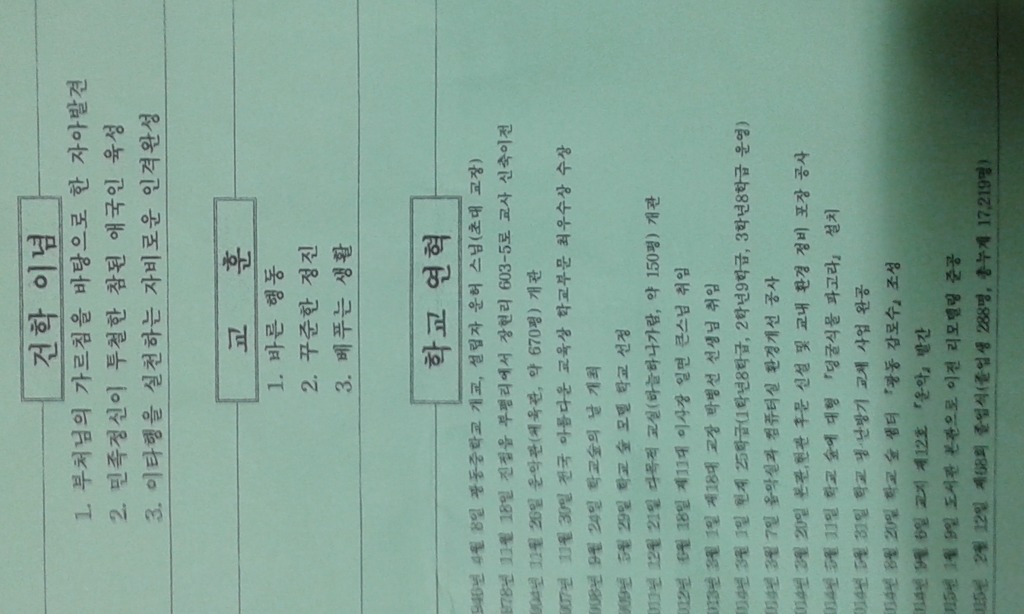 건학 이념
1. 부처님의 가르침을 바탕으로 한 자아발견
2. 민족정신이 투철한 참된 애국인 육성
3. 이타행을 실천하는 자비로운 인격완성
교 훈
1. 바른 행동
2. 꾸준한 정진
3. 베푸는 생활
학교 연혁
4월 8일 광동중학교 개교, 설립자 운허 스님(초대 교장)
11월 18일 진접읍 부평리에서 장현리 603-5로 교사 신축이전
11월 26일 운악관(체육관, 약 670평) 개관
11월 30일 전국 아름다운 교육상 학교부문 최우수상 수상
9월 24일 학교숲의 날 개최
5월 29일 학교 숲 모델 학교 선정
12월 21일 다목적 교실(하늘하나가람, 약 150평) 개관
6월 18일 제11대 이사장 일면 큰스님 취임
3월 1일 제18대 교장 박병선 선생님 취임
3월 1일 현재 25학급(1학년8학급, 2학년9학급, 3학년8학급 운영)
3월 7일 음악실과 컴퓨터실 환경개선 공사
3월 20일 본관,현관 후문 신설 및 교내 환경 정비 포장 공사
5월 11일 학교 숲에 대형 『덩굴식물 파고라』 설치
5월 31일 학교 냉·난방기 교체 사업 완공
6월 20일 학교 숲 쉼터 『광동 감로수』 조성
9월 6일 교지 제12호 『운악』 발간
1월 9일 도서관 본관으로 이전 리모델링 준공
2월 12일 제68회 졸업식(졸업생 288명, 총누계 17,219명)